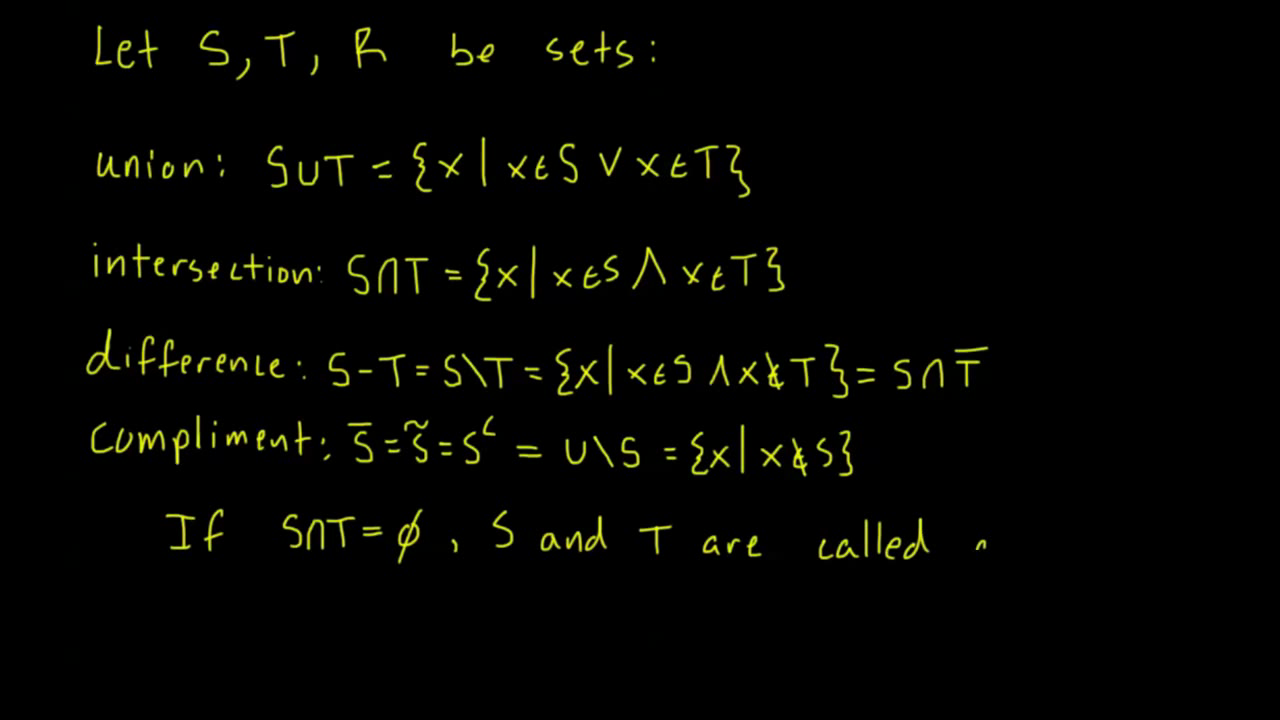 Let S, T, R be sets:
union: S∪T = {x | x∈S ∨ x∈T}
intersection: S∩T = {x | x∈S ∧ x∈T}
difference: S-T = S\T = {x | x∈S ∧ x∉T} = S∩T̅
compliment: S̅ = S̃ = Sᶜ = U\S = {x | x∉S}
If S∩T = ϕ, S and T are called